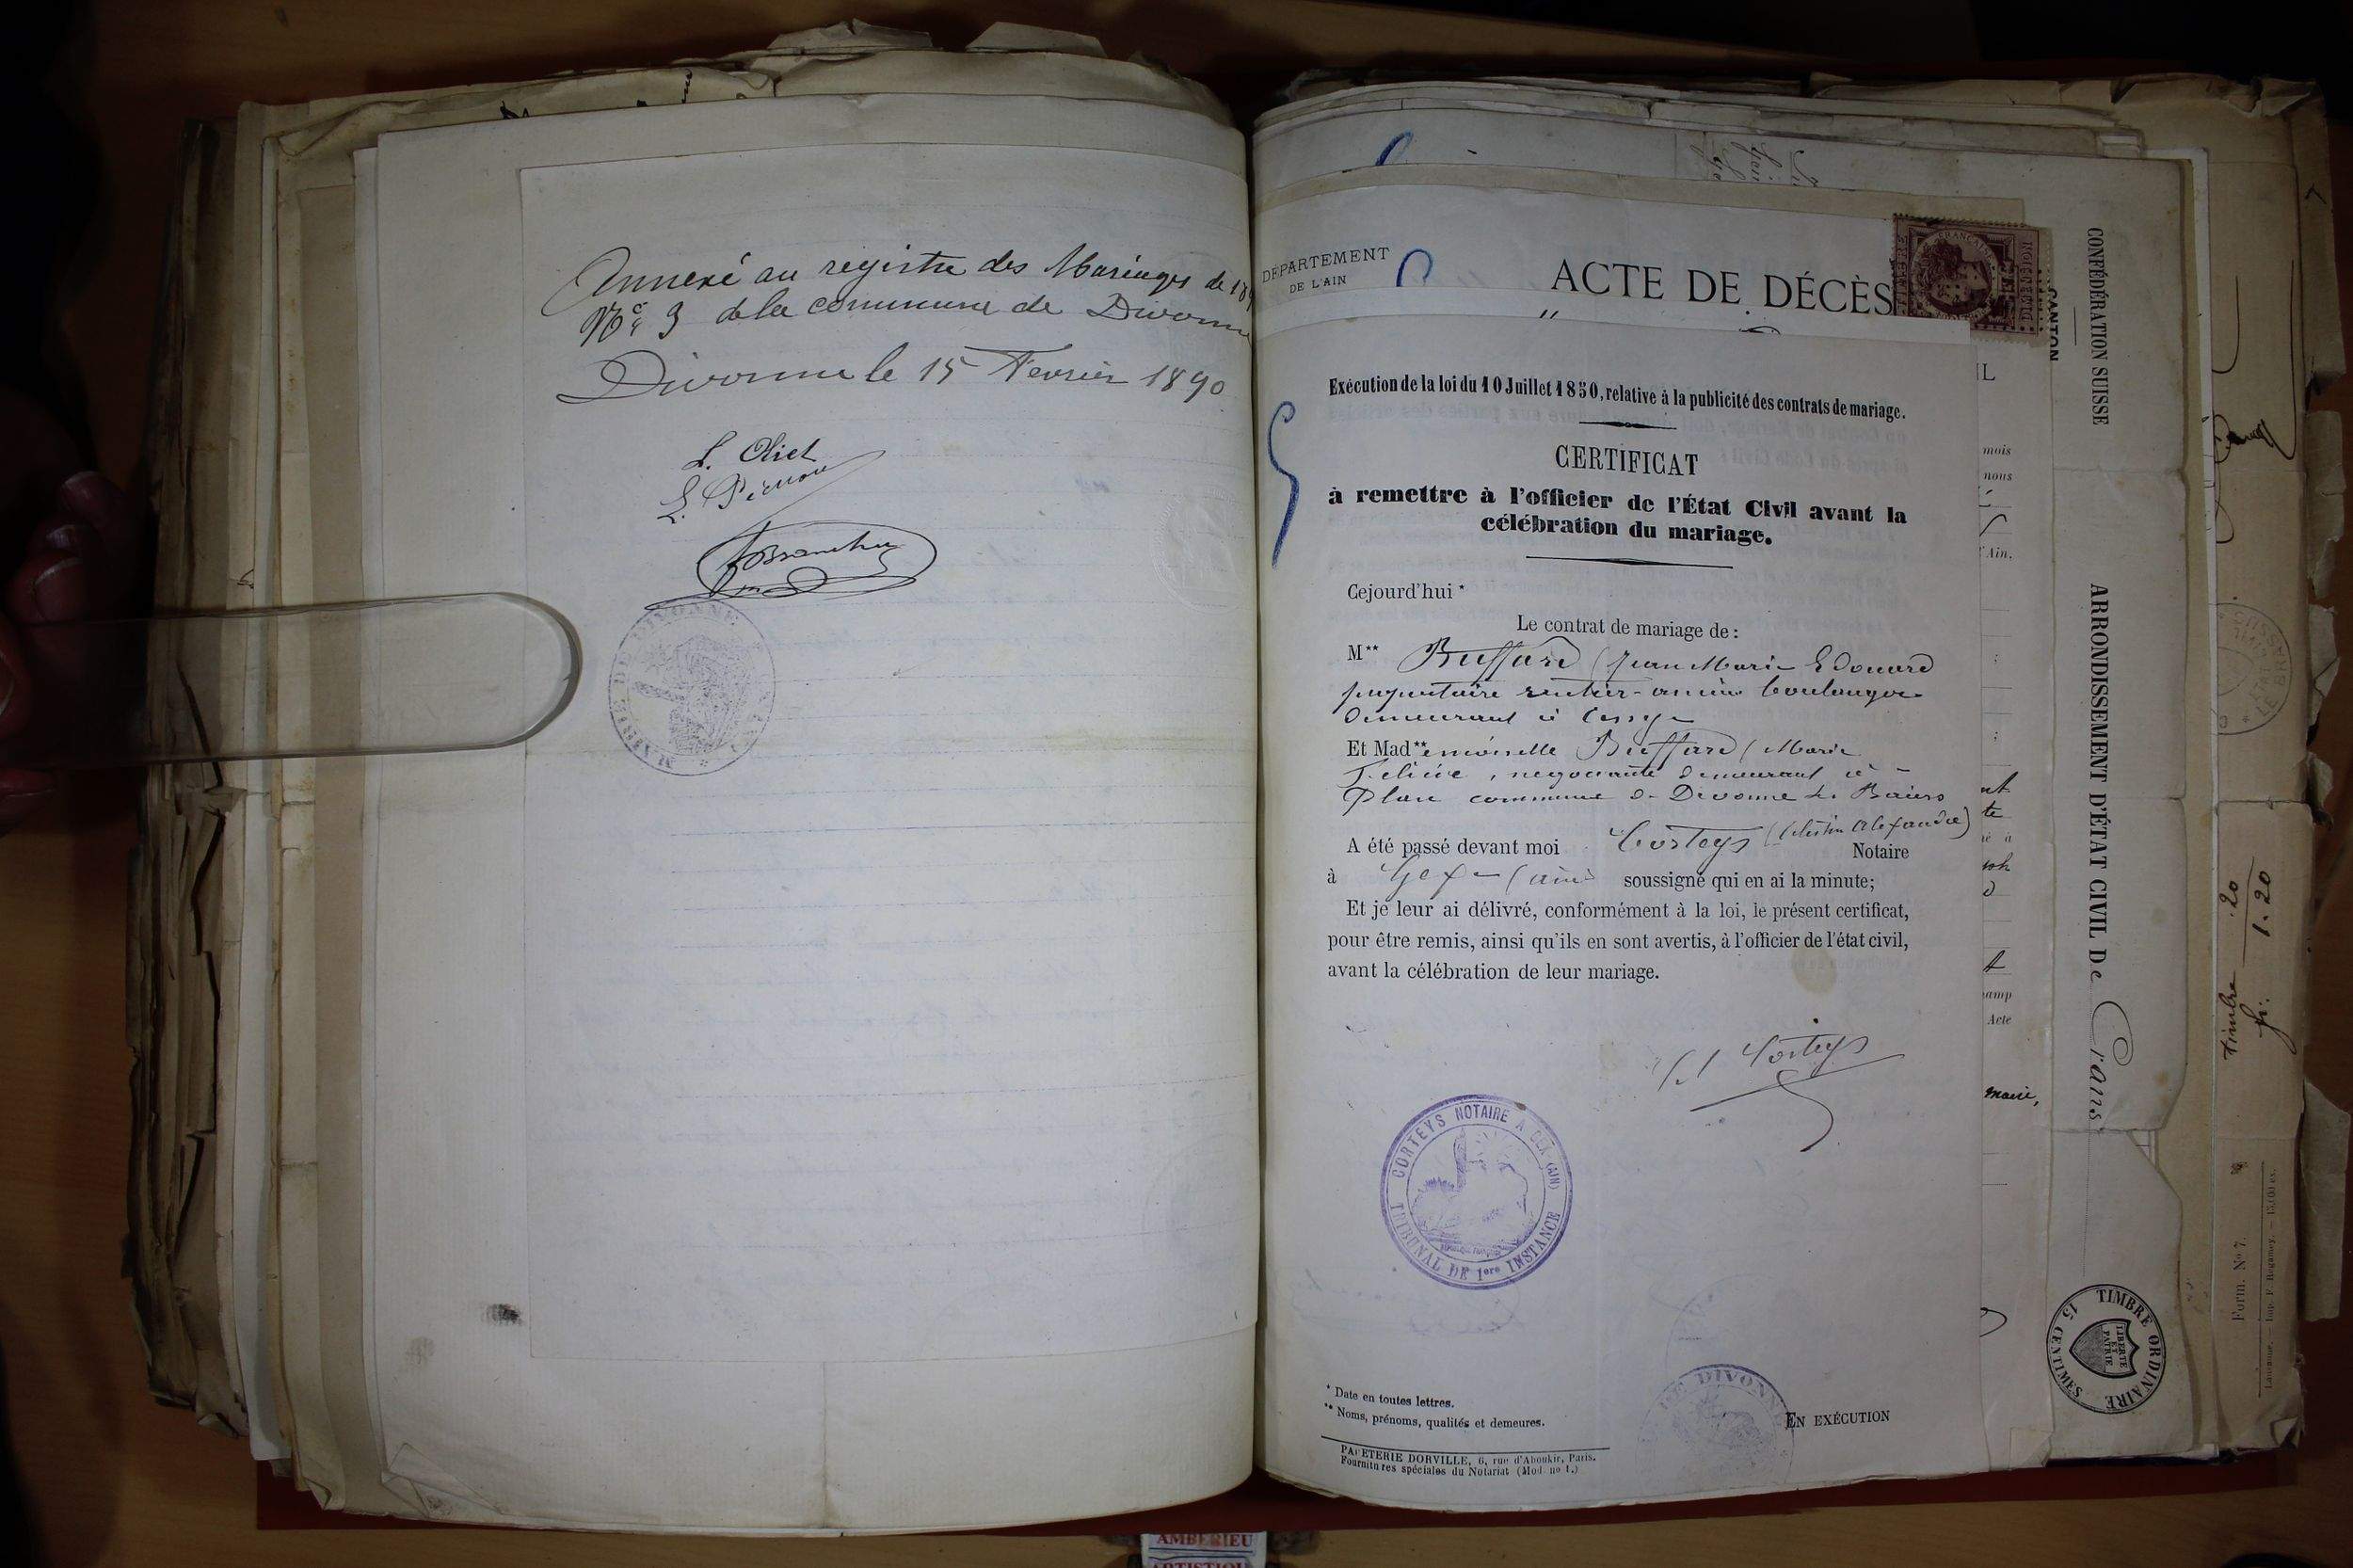 Annexé au registre des Mariages de 18
No 3 de la commune de Divonne
Divonne le 15 Fevrier 1890
MAIRIE DE DIVONNE
DÉPARTEMENT
DE L'AIN
ACTE DE DÉCÈS
Exécution de la loi du 10 Juillet 1850, relative à la publicité des contrats de mariage.
CERTIFICAT
à remettre à l'officier de l'État Civil avant la
célébration du mariage.
Cejourd'hui *
Le contrat de mariage de :
M** Buffard (Jean Marie Edouard
propriétaire rentier ancien boulanger
demeurant à Cessy
Et Mad**emoiselle Buffard (Marie
négociante demeurant à
Plan commune de Divonne les Bains
A été passé devant moi Corteys (Célestin Alexandre) Notaire
à Gex (Ain) soussigné qui en ai la minute;
Et je leur ai délivré, conformément à la loi, le présent certificat,
pour être remis, ainsi qu'ils en sont avertis, à l'officier de l'état civil,
avant la célébration de leur mariage.
Corteys
CORTEYS NOTAIRE A GEX (AIN)
TRIBUNAL DE 1ere INSTANCE
* Date en toutes lettres.
** Noms, prénoms, qualités et demeures.
DE DIVONNE
EN EXÉCUTION
PAPETERIE DORVILLE, 6, rue d'Aboukir, Paris.
Fournitures spéciales du Notariat (Mod. no 1.)
IL
mois
nous
l'Ain.
nt
te
amp
Acte
maire,
CANTON
CONFÉDÉRATION SUISSE
ARRONDISSEMENT D'ÉTAT CIVIL De Crans
TIMBRE ORDINAIRE
15 CENTIMES
LIBERTÉ
ET
PATRIE
timbre .20
fr. 1.20
Form. No 7.
AMBERIEU